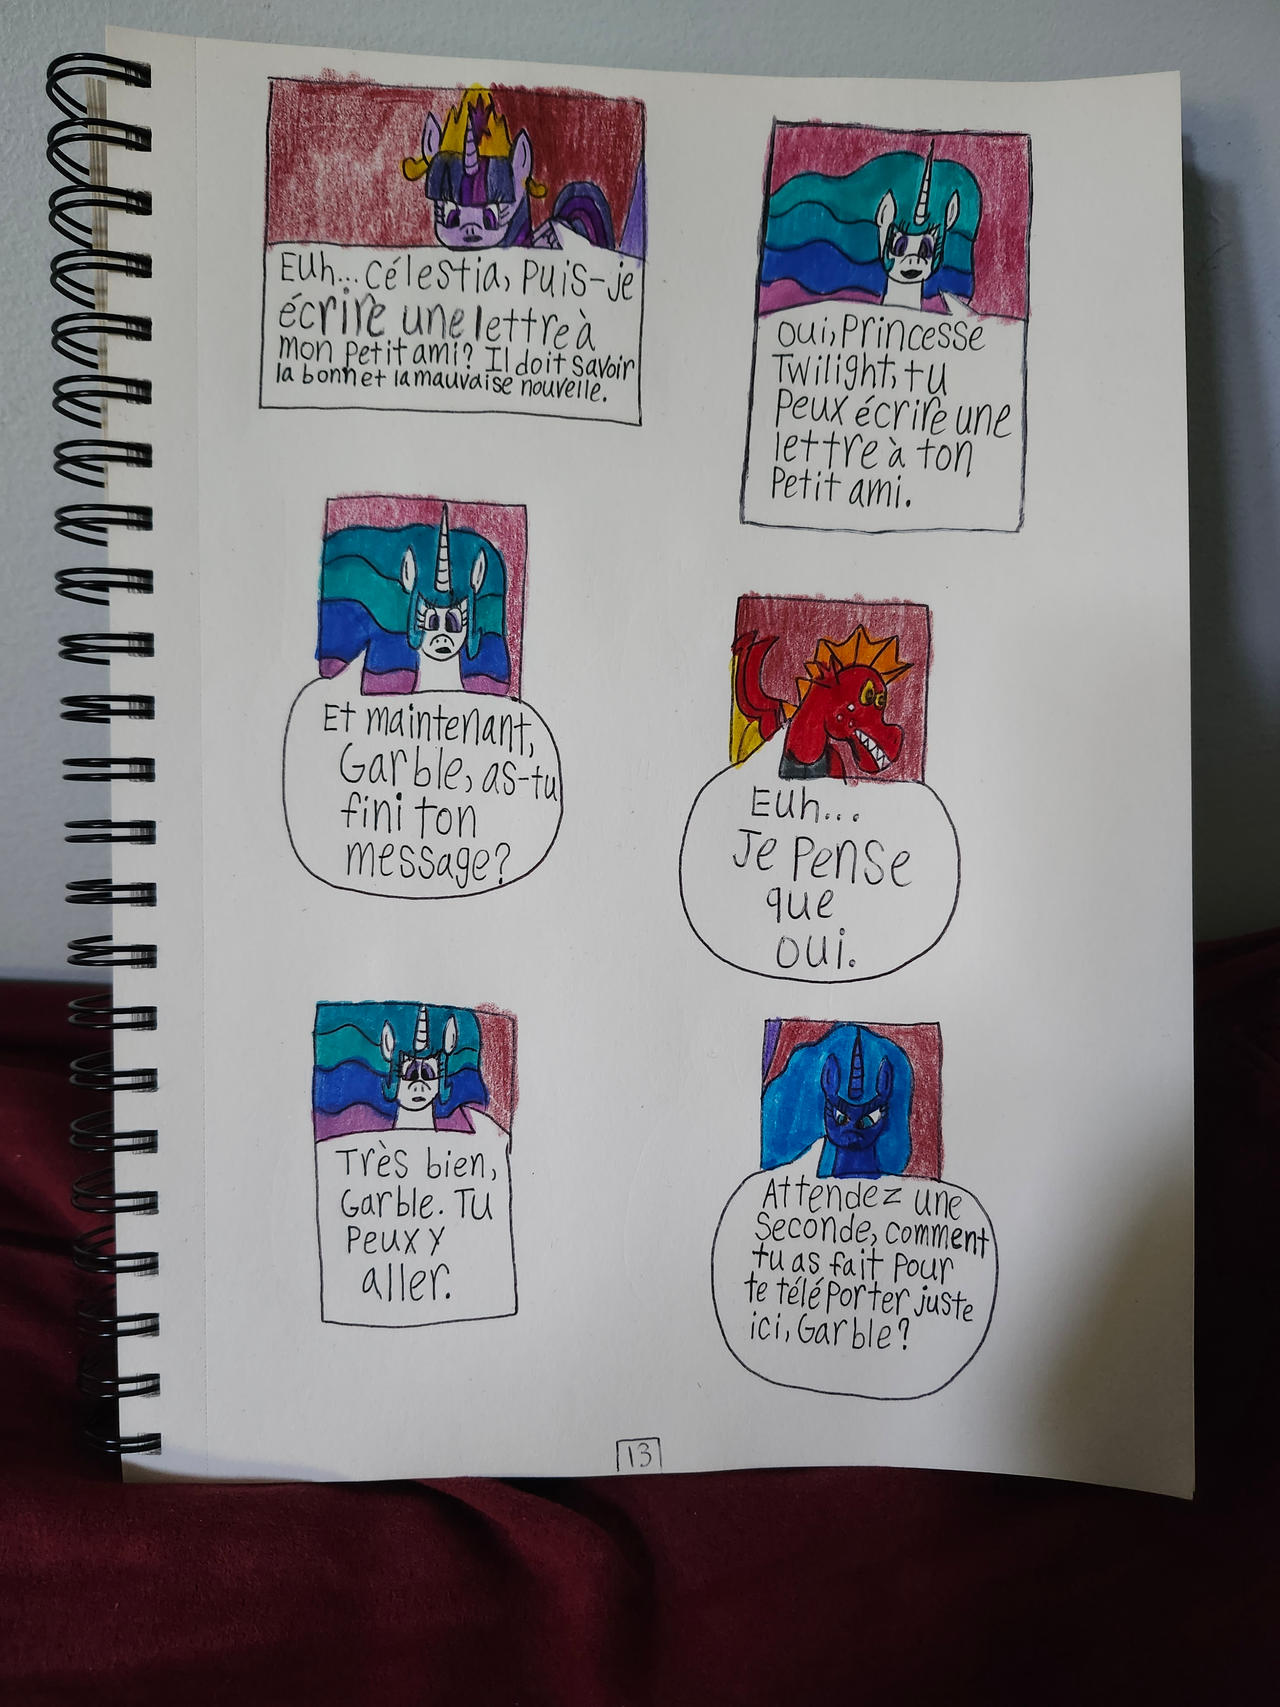 Euh... Célestia, puis-je
écrire une lettre à
mon petit ami? Il doit savoir
la bonn et la mauvaise nouvelle.
Oui, Princesse
Twilight, tu
peux écrire une
lettre à ton
petit ami.
Et maintenant,
Garble, as-tu
fini ton
message?
Euh...
Je pense
que
oui.
Très bien,
Garble. Tu
peux y
aller.
Attendez une
seconde, comment
tu as fait pour
te téléporter juste
ici, Garble?
13